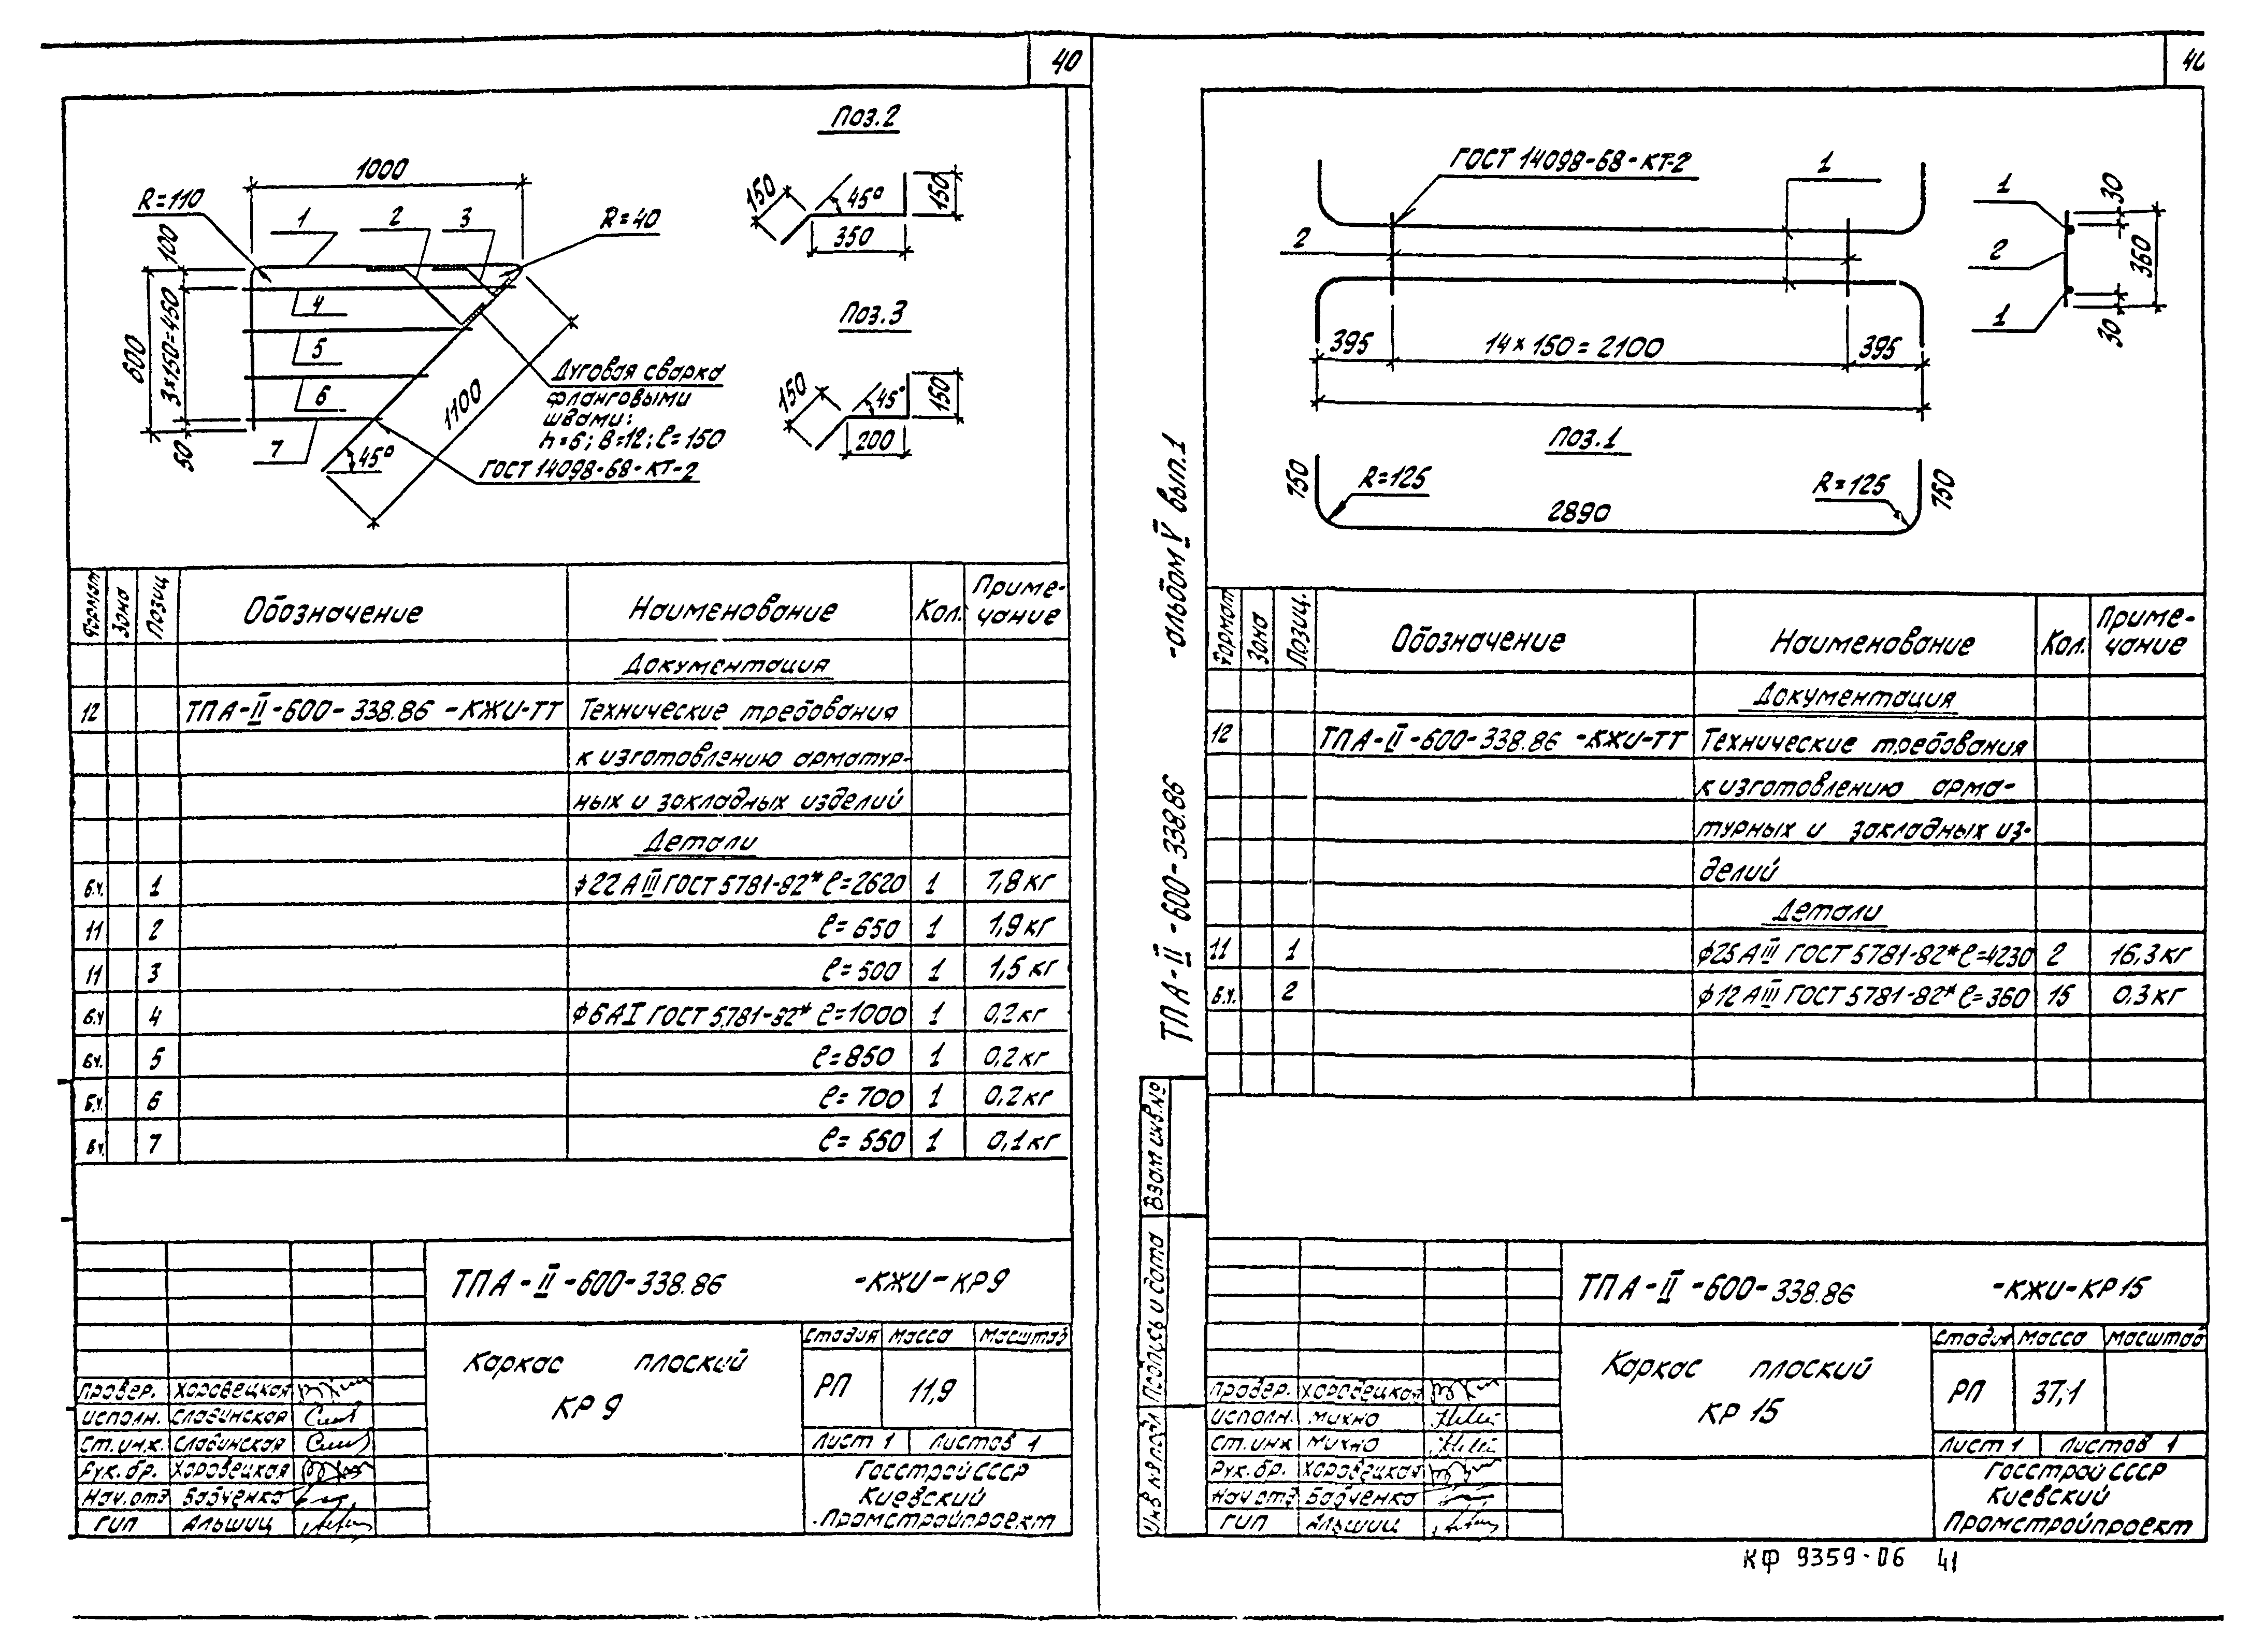 40
Поз.2
1000
R=110
1
2
3
R=40
100
600
3×150=450
50
4
5
6
7
45°
1100
Дуговая сварка
фланговыми
швами:
h=6; в=12; ℓ=150
ГОСТ 14098-68-КТ-2
150
45°
150
350
Поз.3
150
45°
150
200
Формат Зона Позиц Обозначение Наименование Кол. Приме-
чание
Документация
12 ТПА-II-600-338.86 -КЖИ-ТТ Технические требования
к изготовлению арматур-
ных и закладных изделий
Детали
Б.ч. 1 ϕ22 АIII ГОСТ 5781-82* ℓ=2620 1 7,8 кг
11 2 ℓ=650 1 1,9 кг
11 3 ℓ=500 1 1,5 кг
Б.ч 4 ϕ6АI ГОСТ 5781-82* ℓ=1000 1 0,2 кг
Бч. 5 ℓ=850 1 0,2 кг
Б.ч. 6 ℓ=700 1 0,2 кг
Бч. 7 ℓ=550 1 0,1 кг
ТПА-II-600-338.86 -КЖИ-КР9
Каркас плоский
КР 9
Стадия Масса Масштаб
РП 11,9
Лист 1 Листов 1
Провер. Хоровецкая
Исполн. Славинская
Ст.инж. Славинская
Рук.бр. Хоровецкая
Нач.отд Бабченко
ГИП Альшиц
Госстрой СССР
Киевский
Промстройпроект
40
ГОСТ 14098-68-КТ-2
1
2
395
14×150=2100
395
1
2
1
30
360
30
Поз.1
750
R=125
2890
R=125
750
ТПА-II-600-338.86 -альбом V вып.1
Формат Зона Позиц. Обозначение Наименование Кол. Приме-
чание
Документация
12 ТПА-II-600-338.86 -КЖИ-ТТ Технические требования
к изготовлению арма-
турных и закладных из-
делий
Детали
11 1 ϕ25 АIII ГОСТ 5781-82* ℓ=4230 2 16,3 кг
Б.ч. 2 ϕ12 АIII ГОСТ 5781-82* ℓ=360 15 0,3 кг
Взам инв.№
Подпись и дата
Инв № подл
ТПА-II-600-338.86 -КЖИ-КР15
Каркас плоский
КР 15
Стадия Масса Масштаб
РП 37,1
Лист 1 Листов 1
Провер. Хоровецкая
Исполн. Михно
Ст.инж Михно
Рук.бр. Хоровецкая
Нач отд Бабченко
ГИП Альшиц
Госстрой СССР
Киевский
Промстройпроект
КФ 9359-06 41